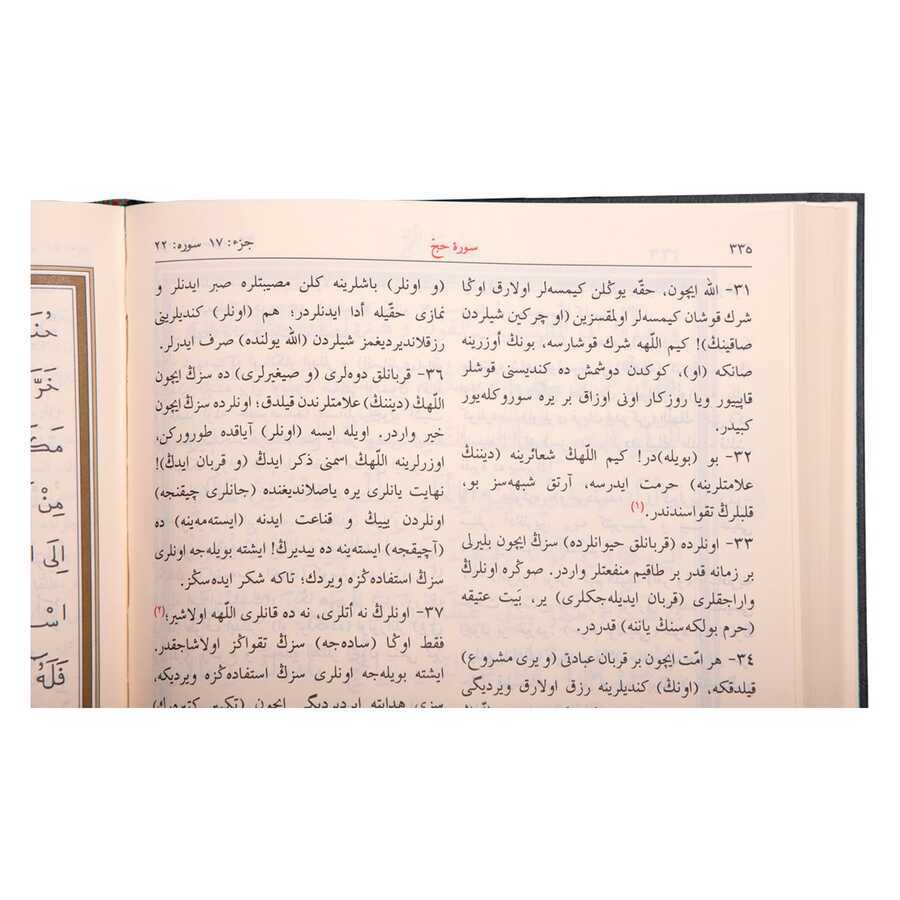 ٣٣٥
سورۀ حج
جزء: ١٧ سوره: ٢٢
٣١- الله ایچون، حقّه یوڭلن کیمسه‌لر اولارق اوڭا
شرك قوشان کیمسه‌لر اولمقسزین (او چرکین شیلردن
صاقینڭ)! کیم اللّهه شرك قوشارسه، بونڭ اوزرینه
صانکه (او)، کوکدن دوشمش ده کندیسنی قوشلر
قاپییور ویا روزکار اونی اوزاق بر یره سوروکله‌یور
کبیدر.
٣٢- بو (بویله)در! کیم اللّهڭ شعائرینه (دیننڭ
علامتلرینه) حرمت ایدرسه، آرتق شبهه‌سز بو،
قلبلرڭ تقواسندندر.(١)
٣٣- اونلرده (قربانلق حیوانلرده) سزڭ ایچون بلیرلی
بر زمانه قدر بر طاقیم منفعتلر واردر. صوڭره اونلرڭ
واراجقلری (قربان ایدیله‌جکلری) یر، بَیت عتیقه
(حرم بولکه‌سنڭ یاننه) قدردر.
٣٤- هر امّت ایچون بر قربان عبادتی (و یری مشروع)
قیلدقکه، (اونڭ) کندیلرینه رزق اولارق ویردیگی
(و اونلر) باشلرینه کلن مصیبتلره صبر ایدنلر و
نمازی حقّیله أدا ایدنلردر؛ هم (اونلر) کندیلرینی
رزقلاندیردیغمز شیلردن (الله یولنده) صرف ایدرلر.
٣٦- قربانلق دوه‌لری (و صیغیرلری) ده سزڭ ایچون
اللّهڭ (دیننڭ) علامتلرندن قیلدق؛ اونلرده سزڭ ایچون
خیر واردر. اویله ایسه (اونلر) آیاقده طورورکن،
اوزرلرینه اللّهڭ اسمنی ذکر ایدڭ (و قربان ایدڭ)!
نهایت یانلری یره یاصلاندیغنده (جانلری چیقنجه)
اونلردن یییڭ و قناعت ایدنه (ایسته‌مه‌ینه) ده
(آچیقجه) ایسته‌ینه ده ییدیرڭ! ایشته بویله‌جه اونلری
سزڭ استفاده‌ڭزه ویردك؛ تاکه شکر ایده‌سڭز.
٣٧- اونلرڭ نه أتلری، نه ده قانلری اللّهه اولاشیر؛(٢)
فقط اوڭا (ساده‌جه) سزڭ تقواڭز اولاشاجقدر.
ایشته بویله‌جه اونلری سزڭ استفاده‌ڭزه ویردیکه،
سزی هدایته ایردیردیگی ایچون (تکبیر کتیره‌رك)
خَرَّ
مِنْ
اِلَى